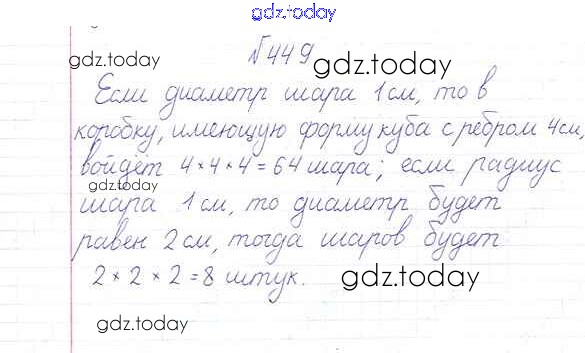 gdz.today
№449
gdz.today
gdz.today
Если диаметр шара 1 см, то в
коробку, имеющую форму куба с ребром 4см,
войдёт 4×4×4=64 шара; если радиус
gdz.today
шара 1 см, то диаметр будет
равен 2 см, тогда шаров будет
2×2×2=8 штук.
gdz.today
gdz.today